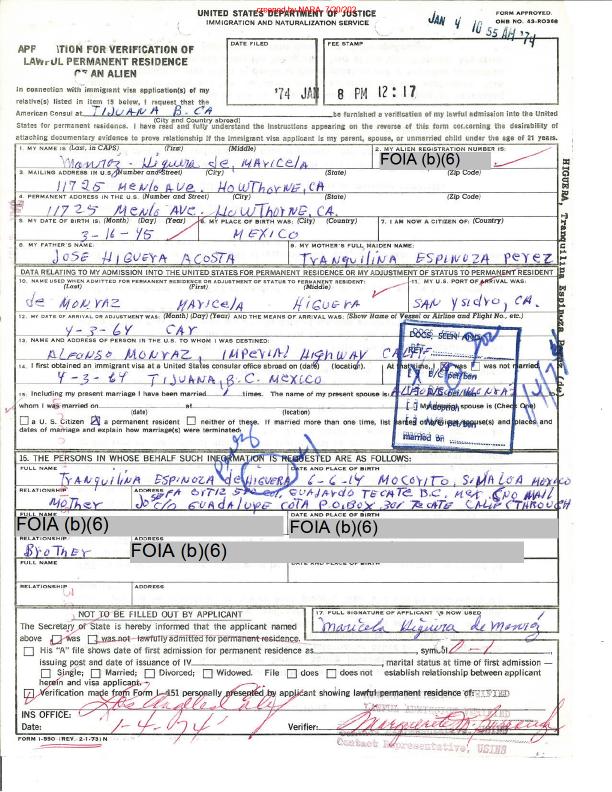 created by NARA, 7/20/202
UNITED STATES DEPARTMENT OF JUSTICE
IMMIGRATION AND NATURALIZATION SERVICE
FORM APPROVED.
OMB NO. 43-R0368
JAN 4 10 55 AM '74
TION FOR VERIFICATION OF
LAWFUL PERMANENT RESIDENCE
AN ALIEN
DATE FILED
FEE STAMP
'74 JAN 8 PM 12:17
In connection with immigrant visa application(s) of my
relative(s) listed in item 15 below, I request that the
American Consul at TIJUANA B.CA be furnished a verification of my lawful admission into the United
(City and Country abroad)
States for permanent residence. I have read and fully understand the instructions appearing on the reverse of this form concerning the desirability of
attaching documentary evidence to prove relationship if the immigrant visa applicant is my parent, spouse, or unmarried child under the age of 21 years.
1. MY NAME IS (Last, in CAPS) (First) (Middle)
Monroz - Higuera de, MARICELA
2. MY ALIEN REGISTRATION NUMBER IS:
FOIA (b)(6)
3. MAILING ADDRESS IN U.S. (Number and Street) (City) (State) (Zip Code)
11725 MENLO AVE. HOWTHORNE, CA
4. PERMANENT ADDRESS IN U.S. (Number and Street) (City) (State) (Zip Code)
11725 MENLO AVE. HOWTHORNE, CA.
5. MY DATE OF BIRTH IS: (Month) (Day) (Year)
3-16-45
6. MY PLACE OF BIRTH WAS: (City) (Country)
MEXICO
7. I AM NOW A CITIZEN OF: (Country)
8. MY FATHER'S NAME:
JOSE HIGUERA ACOSTA
9. MY MOTHER'S FULL MAIDEN NAME:
TRANQUILINA ESPINOZA PEREZ
DATA RELATING TO MY ADMISSION INTO THE UNITED STATES FOR PERMANENT RESIDENCE OR MY ADJUSTMENT OF STATUS TO PERMANENT RESIDENT
10. NAME USED WHEN ADMITTED FOR PERMANENT RESIDENCE OR ADJUSTMENT OF STATUS TO PERMANENT RESIDENT:
(Last) (First) (Middle)
de MONRAZ MARICELA HIGUERA
11. MY U.S. PORT OF ARRIVAL WAS:
SAN YSIDRO, CA.
12. MY DATE OF ARRIVAL OR ADJUSTMENT WAS: (Month) (Day) (Year) AND THE MEANS OF ARRIVAL WAS: (Show Name of Vessel or Airline and Flight No., etc.)
4-3-64 CAR
13. NAME AND ADDRESS OF PERSON IN THE U.S. TO WHOM I WAS DESTINED:
ALFONSO MONRAZ, IMPERIAL HIGHWAY CALIF
14. I first obtained an immigrant visa at a United States consular office abroad on (date) (location). At that time, I was was not married.
4-3-64 TIJUANA, B.C. MEXICO
15. Including my present marriage I have been married times. The name of my present spouse is
whom I was married on at My present spouse is (Check One)
(date) (location)
a U.S. Citizen X a permanent resident neither of these. If married more than one time, list names of prior spouse(s) and places and
dates of marriage and explain how marriage(s) were terminated
DOCS. SEEN AND
RET.
B/C per/ben
B/C per/ben
Adoption
per/ben
married on
HIGUERA, Tranquilina Espinoza
15. THE PERSONS IN WHOSE BEHALF SUCH INFORMATION IS REQUESTED ARE AS FOLLOWS:
FULL NAME
DATE AND PLACE OF BIRTH
TRANQUILINA ESPINOZA de HIGUERA 6-6-14 MOCORITO, SINALOA MEXICO
RELATIONSHIP
ADDRESS
MOTHER JOSEFA ORTIZ GUAJARDO TECATE B.C. MEX. (NO MAIL
C/O GUADALUPE COTA P.O. BOX 301 TECATE CALIF THROUGH
FULL NAME
FOIA (b)(6)
DATE AND PLACE OF BIRTH
FOIA (b)(6)
RELATIONSHIP
BROTHER
ADDRESS
FOIA (b)(6)
FULL NAME
DATE AND PLACE OF BIRTH
RELATIONSHIP
ADDRESS
NOT TO BE FILLED OUT BY APPLICANT
The Secretary of State is hereby informed that the applicant named
above was was not lawfully admitted for permanent residence.
17. FULL SIGNATURE OF APPLICANT AS NOW USED
Maricela Higuera de Monroz
His "A" file shows date of first admission for permanent residence as , symbol O-1
issuing post and date of issuance of IV , marital status at time of first admission —
Single; Married; Divorced; Widowed. File does does not establish relationship between applicant
herein and visa applicant.
Verification made from Form I-151 personally presented by applicant showing lawful permanent residence of:
INS OFFICE: Los Angeles Calif
Date: 1-4-74
Verifier:
Contact Representative, USINS
FORM I-550 (REV. 2-1-73) N